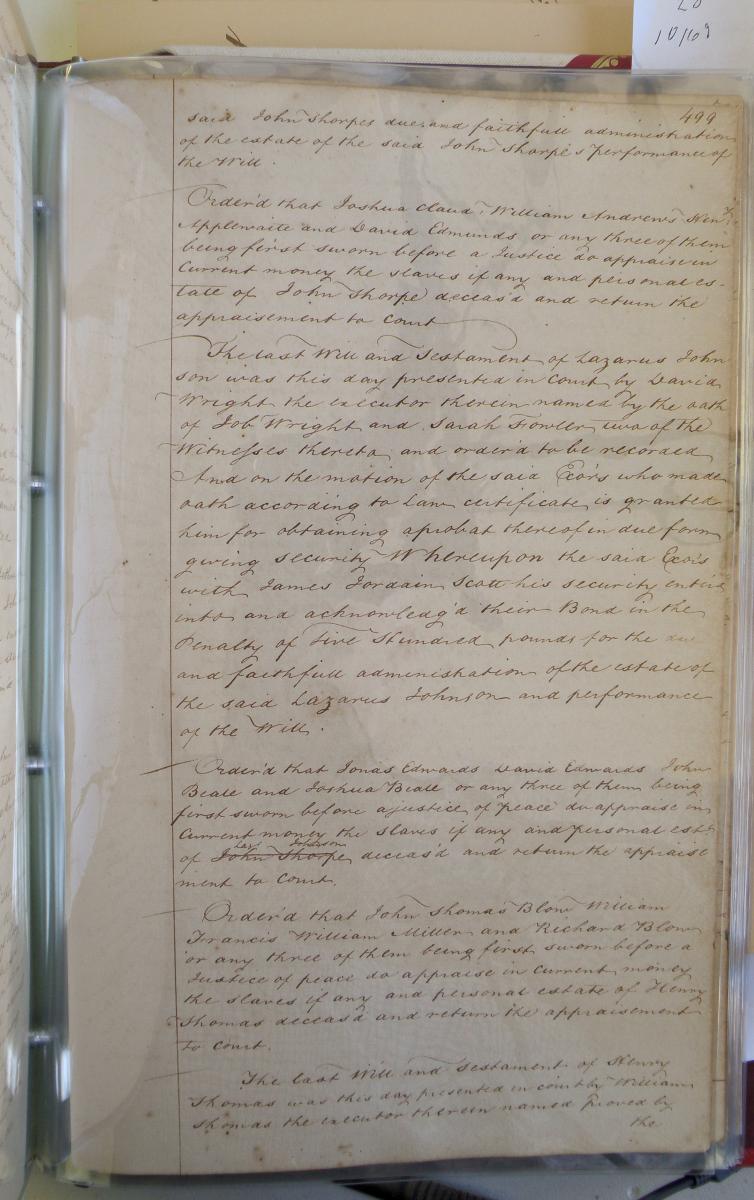 10/69
499
said John Thorpes due and faithfull administration
of the estate of the said John Thorpe's performance of
the Will.
Order'd that Joshua Claud, William Andrews Hen.y
Applewaite and David Edmunds or any three of them
being first sworn before a Justice do appraise in
Current money the slaves if any and personal es-
tate of John Thorpe deceas'd and return the
appraisement to Court
The last Will and Testament of Lazarus John
son was this day presented in Court by David
Wright the executor therein named by the oath
of Job Wright and Sarah Fowler two of the
Witnesses thereto and order'd to be recorded
And on the motion of the said Exors who made
oath according to Law certificate is granted
him for obtaining a probat thereof in due form
giving security Whereupon the said Exors
with James Jordain Scott his security enter'd
into and acknowledg'd their Bond in the
Penalty of Five Hundred pounds for the due
and faithfull administration of the estate of
the said Lazarus Johnson and performance
of the Will.
Order'd that Jonas Edwards David Edwards John
Beale and Joshua Beale or any three of them being
first sworn before a justice of peace do appraise in
Current money the slaves if any and personal est
Johnson
of John Thorpe deceas'd and return the appraise
ment to Court.
Order'd that John Thomas Blow William
Francis William Miller and Richard Blow
or any three of them being first sworn before a
Justice of peace do appraise in current money
the slaves if any and personal estate of Henry
Thomas deceas'd and return the appraisement
to Court.
The last Will and Testament of Henry
Thomas was this day presented in court by William
Thomas the executor therein named proved by
the